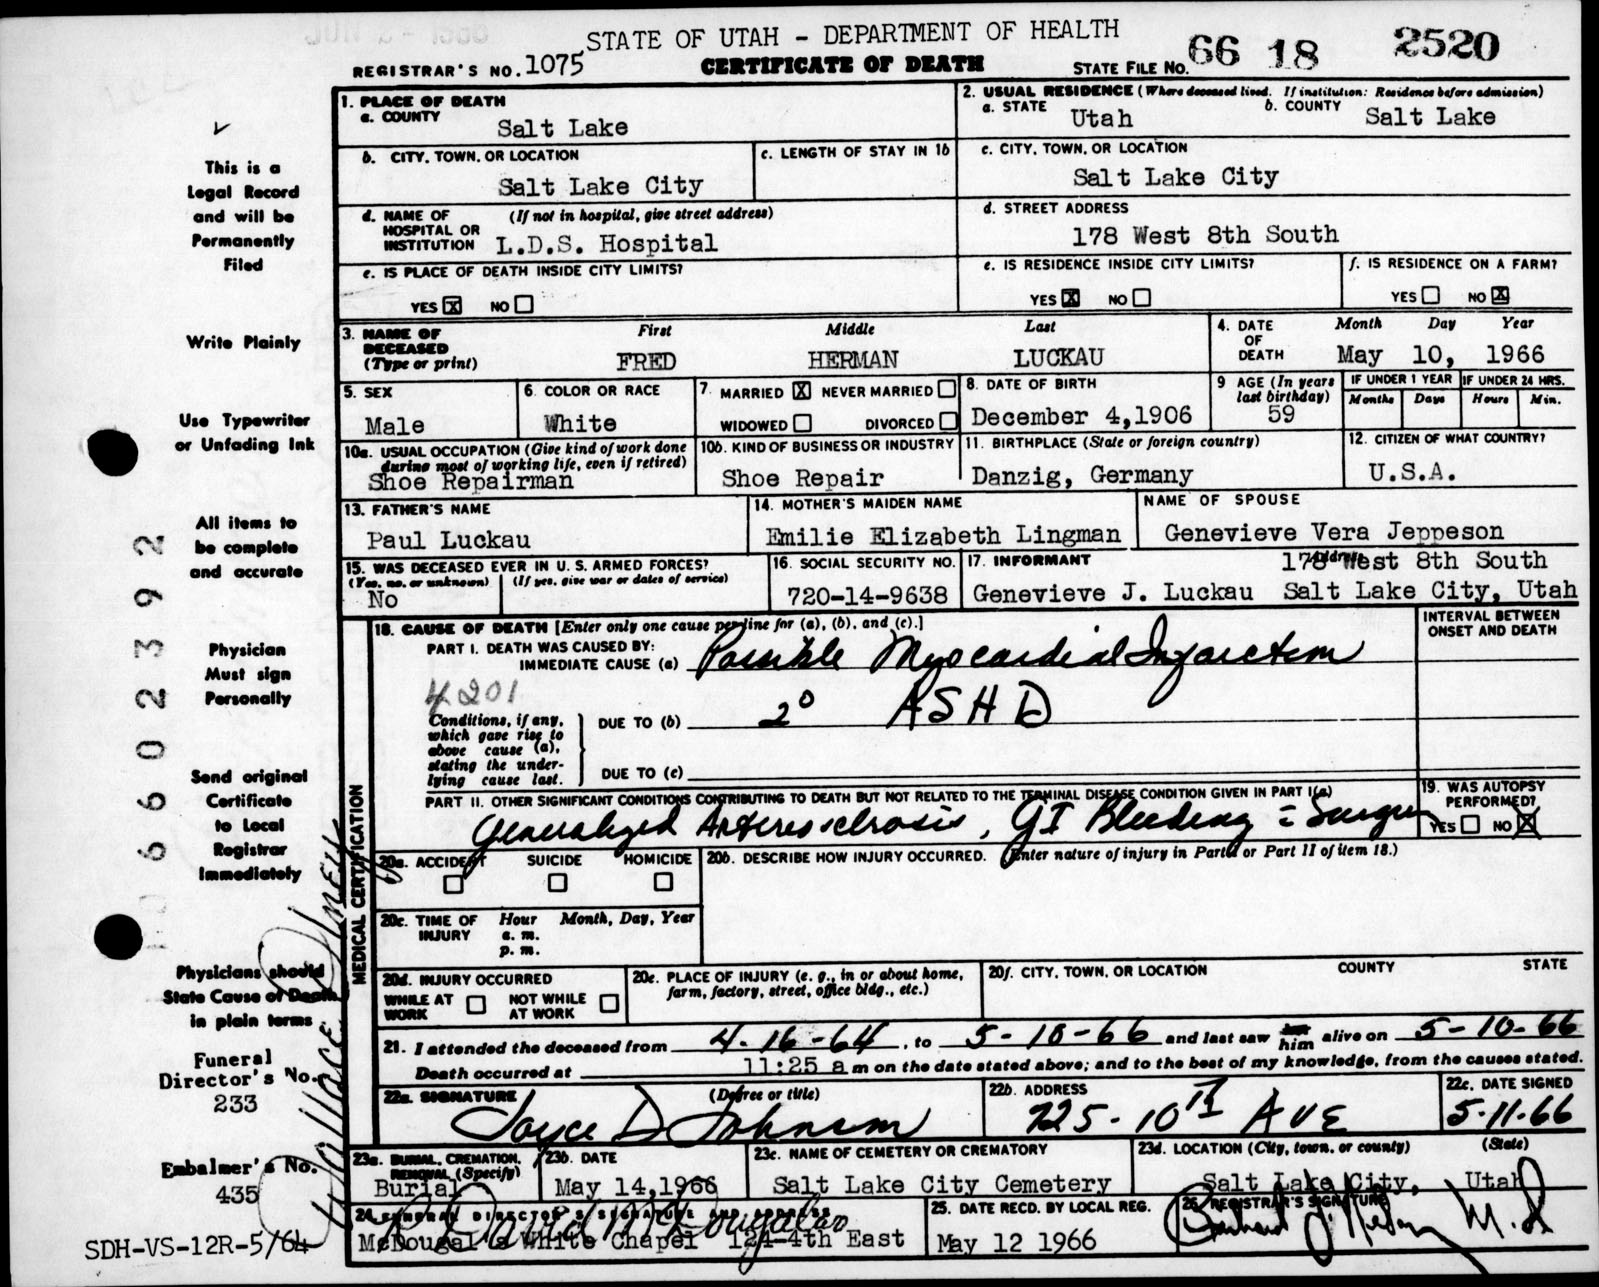 STATE OF UTAH - DEPARTMENT OF HEALTH
REGISTRAR'S NO. 1075
CERTIFICATE OF DEATH
STATE FILE NO. 66 18 2520
1. PLACE OF DEATH
a. COUNTY
Salt Lake
2. USUAL RESIDENCE (Where deceased lived. If institution: Residence before admission)
a. STATE Utah
b. COUNTY Salt Lake
b. CITY, TOWN, OR LOCATION
Salt Lake City
c. LENGTH OF STAY IN 1b
c. CITY, TOWN, OR LOCATION
Salt Lake City
d. NAME OF HOSPITAL OR INSTITUTION (If not in hospital, give street address)
L.D.S. Hospital
d. STREET ADDRESS
178 West 8th South
e. IS PLACE OF DEATH INSIDE CITY LIMITS?
YES X NO
e. IS RESIDENCE INSIDE CITY LIMITS?
YES X NO
f. IS RESIDENCE ON A FARM?
YES NO X
3. NAME OF DECEASED (Type or print)
First Middle Last
FRED HERMAN LUCKAU
4. DATE OF DEATH
Month Day Year
May 10, 1966
5. SEX
Male
6. COLOR OR RACE
White
7. MARRIED X NEVER MARRIED
WIDOWED DIVORCED
8. DATE OF BIRTH
December 4,1906
9 AGE (In years last birthday)
59
IF UNDER 1 YEAR
Months Days
IF UNDER 24 HRS.
Hours Min.
10a. USUAL OCCUPATION (Give kind of work done during most of working life, even if retired)
Shoe Repairman
10b. KIND OF BUSINESS OR INDUSTRY
Shoe Repair
11. BIRTHPLACE (State or foreign country)
Danzig, Germany
12. CITIZEN OF WHAT COUNTRY?
U.S.A.
13. FATHER'S NAME
Paul Luckau
14. MOTHER'S MAIDEN NAME
Emilie Elizabeth Lingman
NAME OF SPOUSE
Genevieve Vera Jeppeson
15. WAS DECEASED EVER IN U. S. ARMED FORCES?
(Yes, no, or unknown) (If yes, give war or dates of service)
No
16. SOCIAL SECURITY NO.
720-14-9638
17. INFORMANT
Address
Genevieve J. Luckau
178 West 8th South
Salt Lake City, Utah
18. CAUSE OF DEATH [Enter only one cause per line for (a), (b), and (c).]
INTERVAL BETWEEN ONSET AND DEATH
PART I. DEATH WAS CAUSED BY:
IMMEDIATE CAUSE (a) Possible Myocardial Infarction
4201
Conditions, if any, which gave rise to above cause (a), stating the underlying cause last.
DUE TO (b) 2° ASHD
DUE TO (c)
PART II. OTHER SIGNIFICANT CONDITIONS CONTRIBUTING TO DEATH BUT NOT RELATED TO THE TERMINAL DISEASE CONDITION GIVEN IN PART I(a)
Generalized Arteriosclerosis, GI Bleeding = Surgery
19. WAS AUTOPSY PERFORMED?
YES NO X
MEDICAL CERTIFICATION
20a. ACCIDENT SUICIDE HOMICIDE
20b. DESCRIBE HOW INJURY OCCURRED. (Enter nature of injury in Part I or Part II of item 18.)
20c. TIME OF INJURY
Hour Month, Day, Year
a. m.
p. m.
20d. INJURY OCCURRED
WHILE AT WORK NOT WHILE AT WORK
20e. PLACE OF INJURY (e. g., in or about home, farm, factory, street, office bldg., etc.)
20f. CITY, TOWN, OR LOCATION COUNTY STATE
21. I attended the deceased from 4-16-64, to 5-10-66 and last saw him alive on 5-10-66
Death occurred at 11:25 a m on the date stated above; and to the best of my knowledge, from the causes stated.
22a. SIGNATURE (Degree or title)
Joyce D Johnson
22b. ADDRESS
725-10TH AVE
22c. DATE SIGNED
5-11-66
23a. BURIAL, CREMATION, REMOVAL (Specify)
Burial
23b. DATE
May 14,1966
23c. NAME OF CEMETERY OR CREMATORY
Salt Lake City Cemetery
23d. LOCATION (City, town, or county) (State)
Salt Lake City, Utah
24. FUNERAL DIRECTOR'S SIGNATURE AND ADDRESS
McDougal's White Chapel 124-4th East
25. DATE RECD. BY LOCAL REG.
May 12 1966
26. REGISTRAR'S SIGNATURE
This is a
Legal Record
and will be
Permanently
Filed
Write Plainly
Use Typewriter
or Unfading Ink
All items to
be complete
and accurate
Physician
Must sign
Personally
Send original
Certificate
to Local
Registrar
Immediately
Physicians should
State Cause of Death
in plain terms
Funeral
Director's No.
233
Embalmer's No.
435
SDH-VS-12R-5/64
6602392